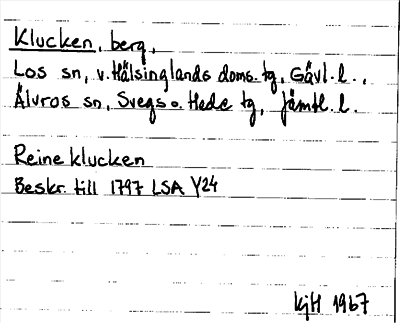 Klucken, berg,
Los sn, v. Hälsinglands doms. tg, Gävl. l.,
Älvros sn, Svegs o. Hede tg, Jämtl. l.
Reine klucken
Beskr. till 1797 LSA Y24
KjH 1967